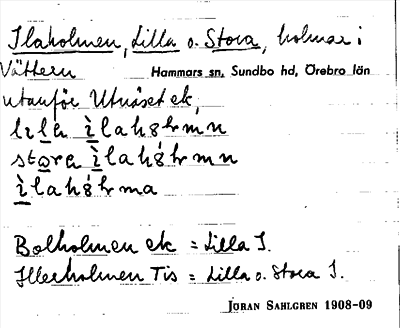 Ilaholmen, Lilla o. Stora, holmar i
Vättern Hammars sn, Sundbo hd, Örebro län
utanför Utnäset ek,
lila ìlahɞlrmn
stora ìlahɞlrmn
ìlahɞlrma
Bolholmen ek = Lilla I.
Illerholmen Tis = Lilla o. Stora I.
JÖRAN SAHLGREN 1908-09